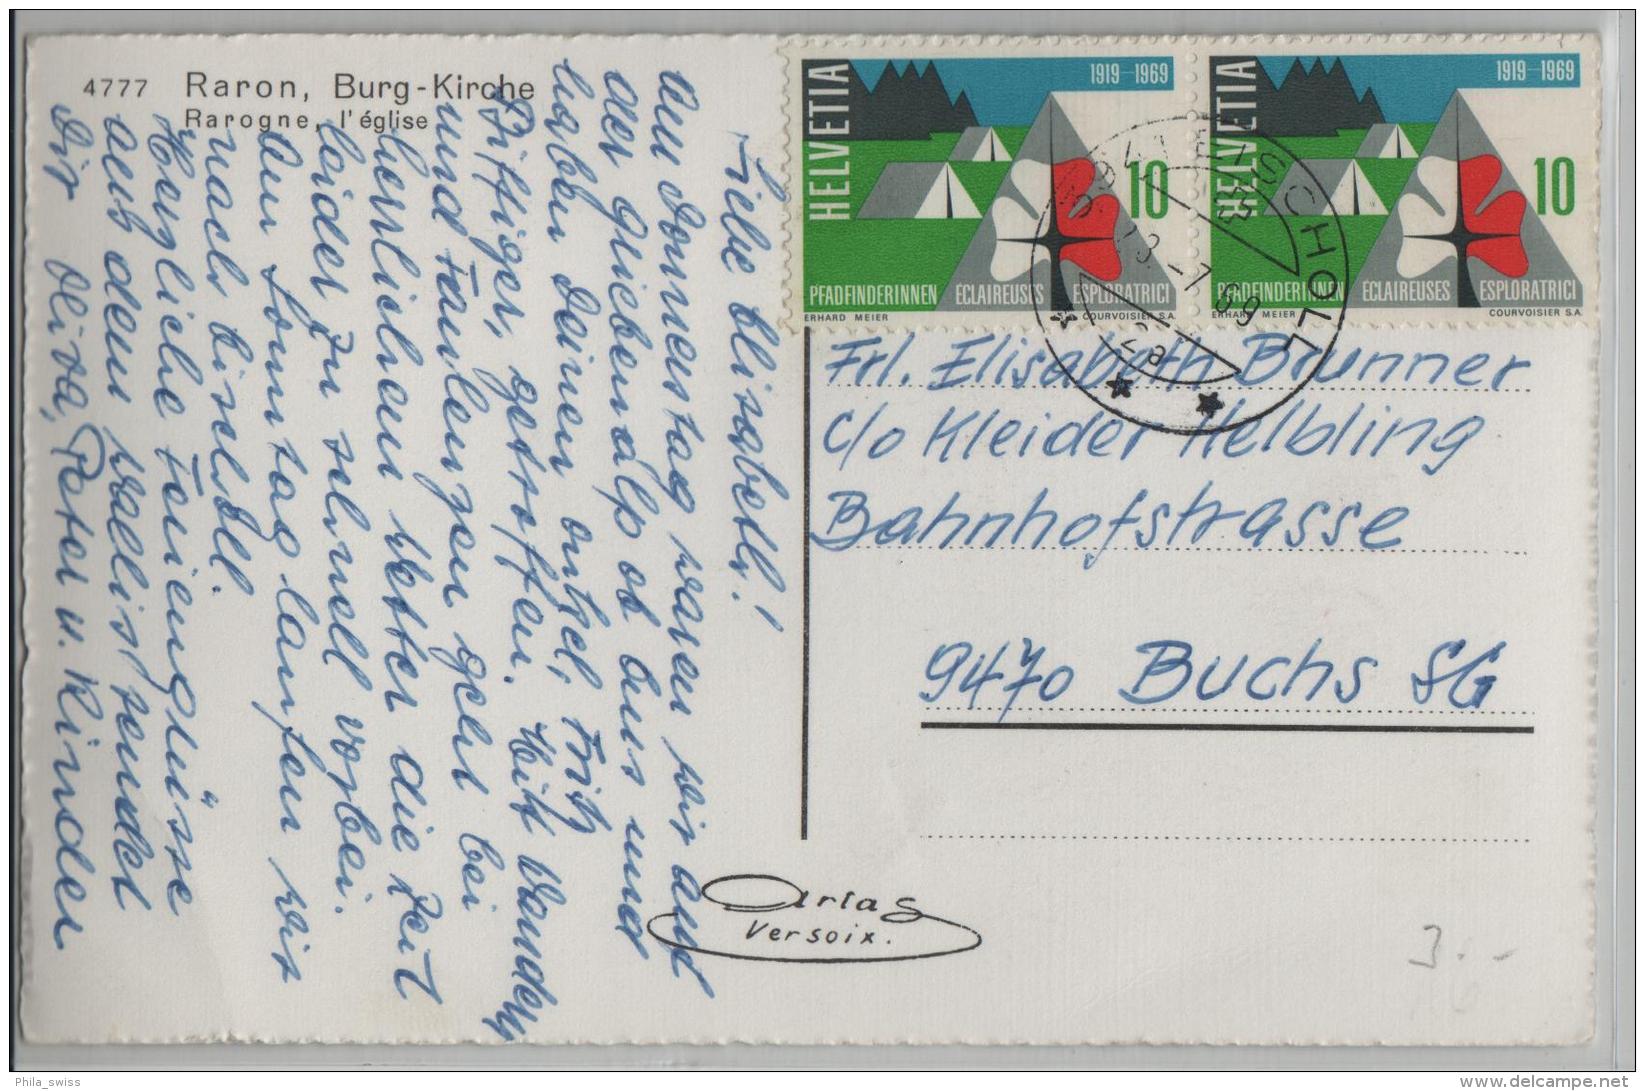 4777 Raron, Burg-Kirche
Rarogne, l'église
Liebe Elisabeth!
Am Donnerstag waren wir auf
der Griebenalp ob Aus und
haben Deinen onkel, Fritz
, getroffen. Mit Wandern
und Faulenzen geht bei
herrlichem Wetter die Zeit
leider zu schnell vorbei.
Am Sonntag laufen wir
nach Eischoll.
Herzliche Feriengrüsse
aus dem Wallis sendet
Dir Oliva, Peter u. Kinder
HELVETIA
1919–1969
10
PFADFINDERINNEN ÉCLAIREUSES ESPLORATRICI
ERHARD MEIER COURVOISIER S.A.
HELVETIA
1919–1969
10
PFADFINDERINNEN ÉCLAIREUSES ESPLORATRICI
ERHARD MEIER COURVOISIER S.A.
EISCHOLL
Frl. Elisabeth Brunner
c/o Kleider Helbling
Bahnhofstrasse
9470 Buchs SG
Artas
Versoix.
3.-
Phila_swiss
delcampe.net